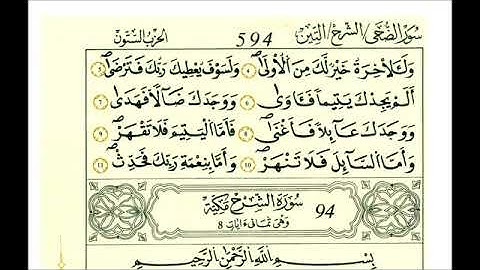 سُوَرُ الضُّحَىٰ/الشَّرْحِ/التِّينِ 594 الحِزْبُ السِّتُّونَ
وَلَلَاخِرَةُ خَيْرٌ لَّكَ مِنَ اَلُاولَىٰ ٤ وَلَسَوْفَ يُعْطِيكَ رَبُّكَ فَتَرْضَىٰ ٥
أَلَمْ يَجِدْكَ يَتِيماً فَـَٔاوَىٰ ٦ وَوَجَدَكَ ضَآلّاً فَهَدَىٰ ٧
وَوَجَدَكَ عَآئِلاً فَأَغْنَىٰ ٨ فَأَمَّا اَلْيَتِيمَ فَلَا تَقْهَرْ ٩
وَأَمَّا اَلسَّآئِلَ فَلَا تَنْهَرْ ١٠ وَأَمَّا بِنِعْمَةِ رَبِّكَ فَحَدِّثْ ١١
94 سُورَةُ الشَّرْحِ مَكِّيَّةٌ
وَهْيَ ثَمَانِي ءَايَاتٍ 8
بِسْمِ اِللَّهِ اِلرَّحْمَٰنِ اِلرَّحِيمِ